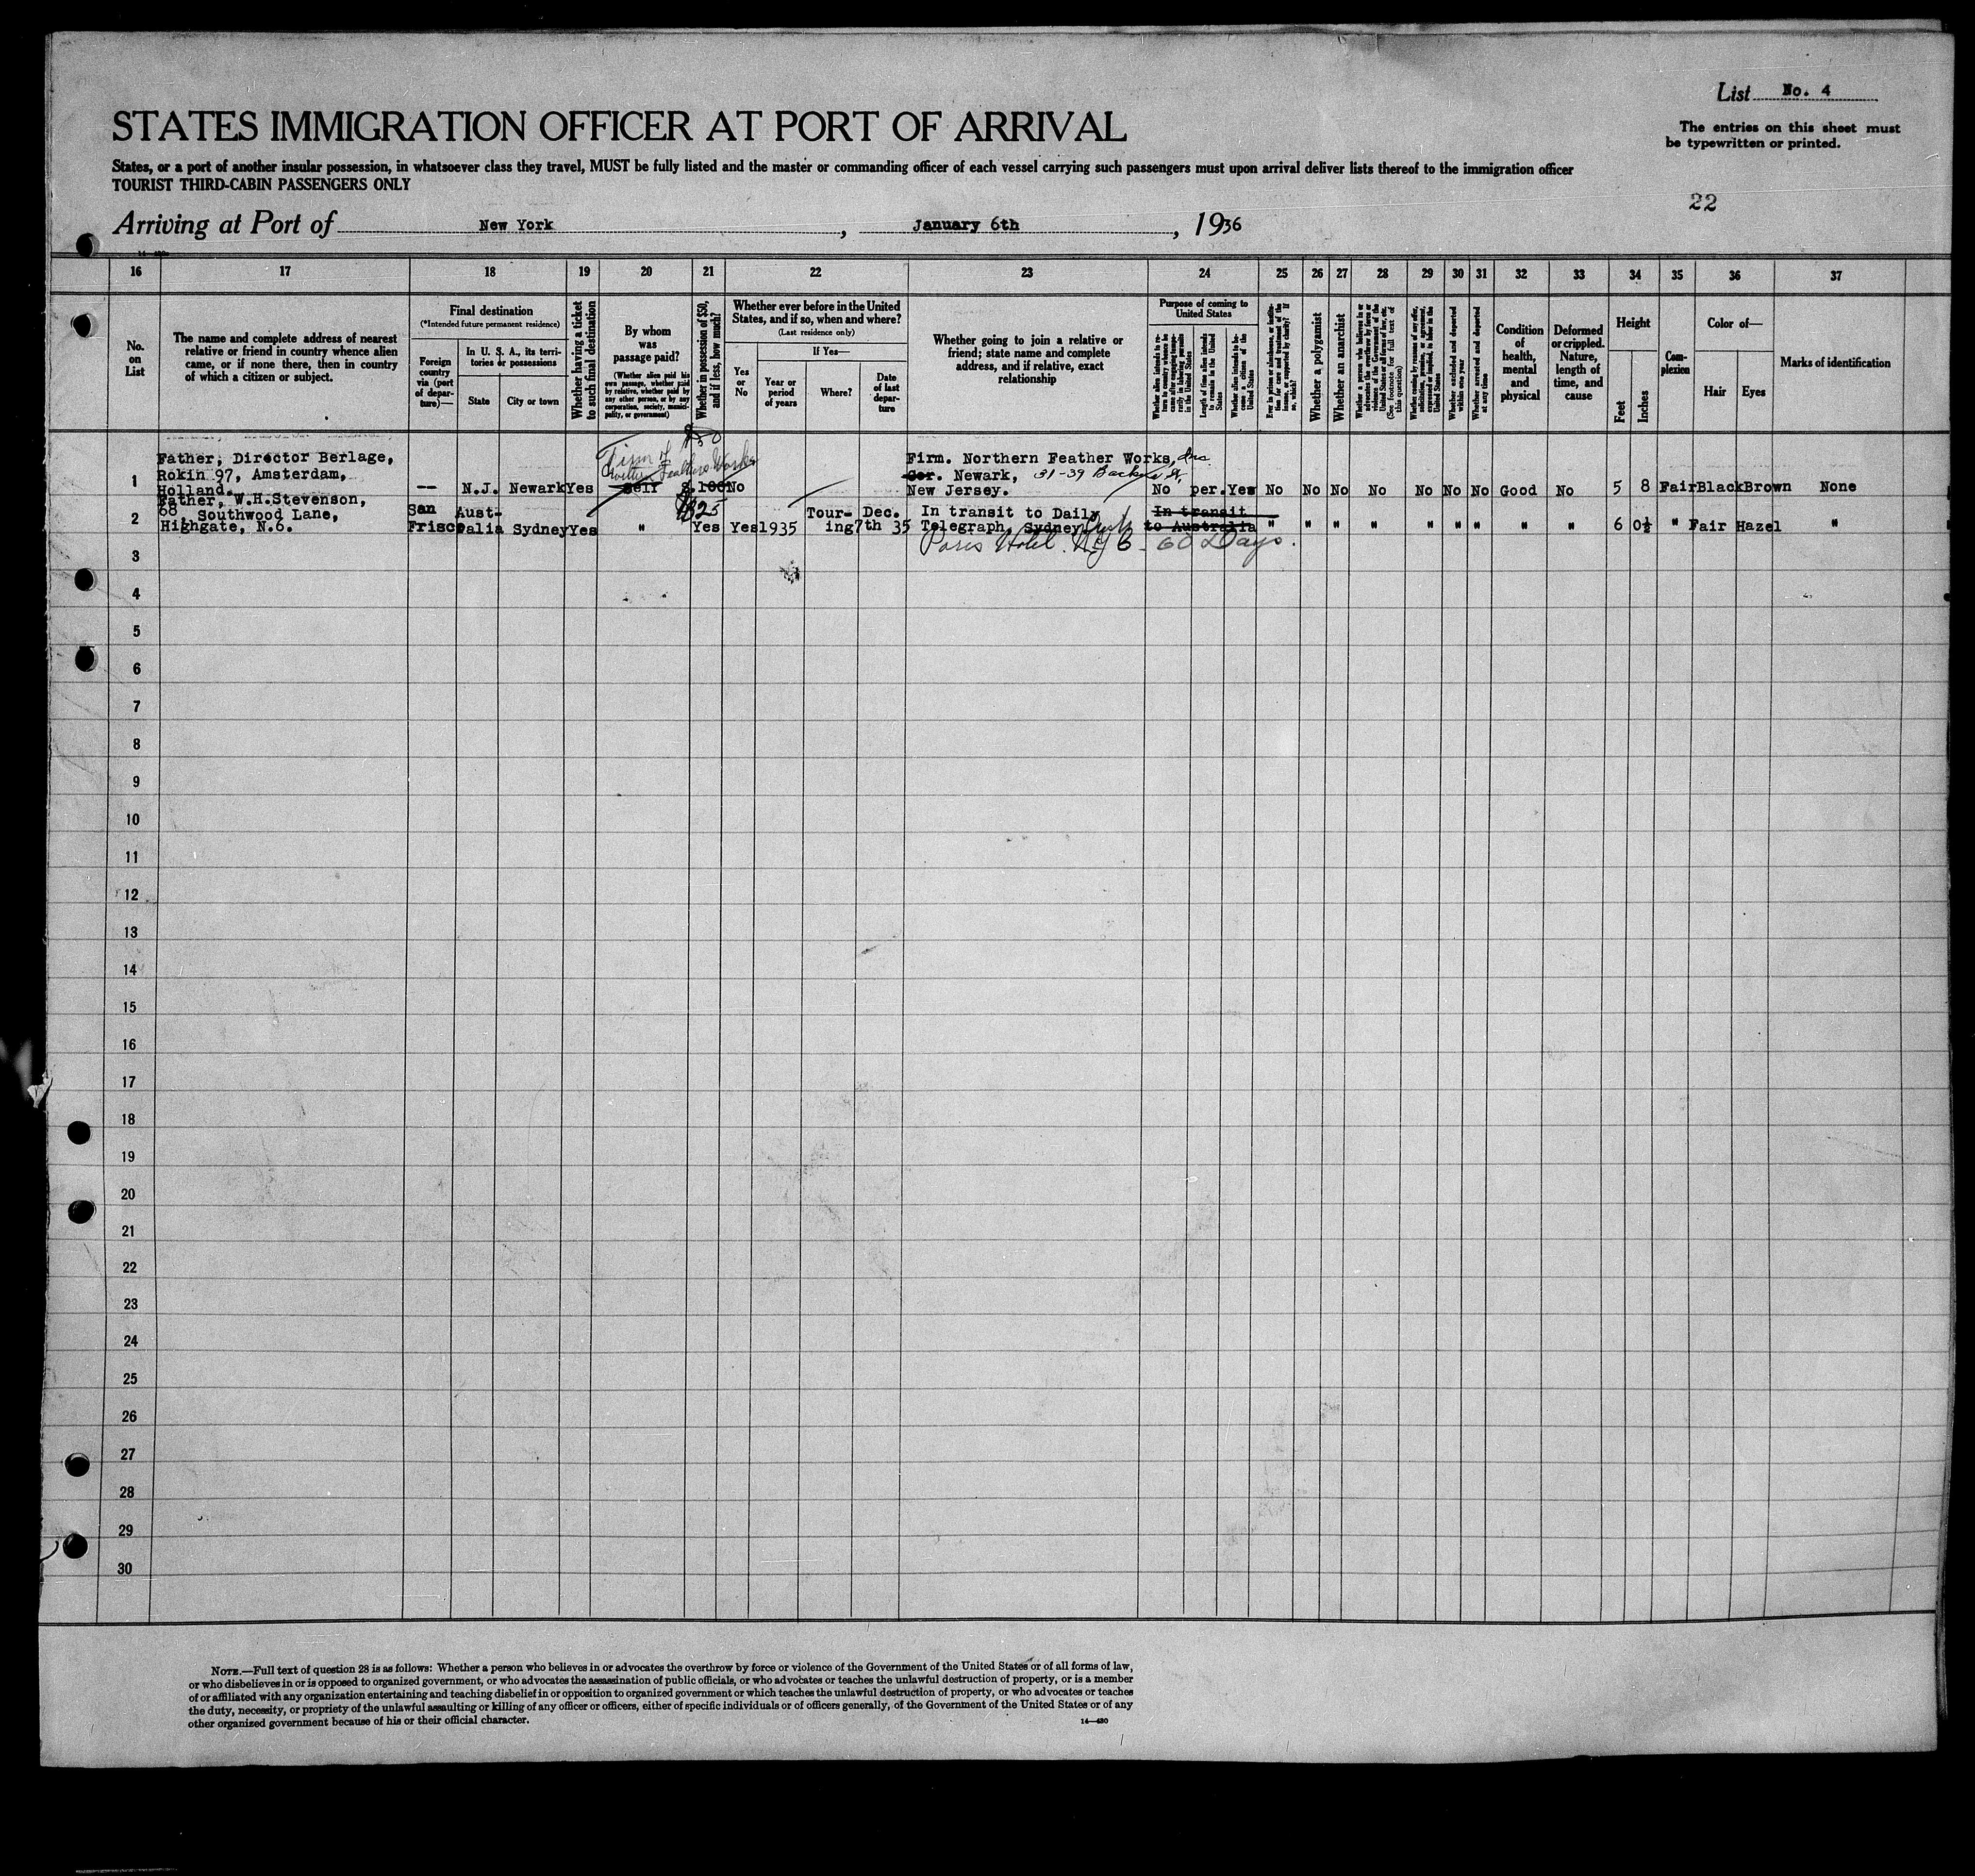 List No. 4
STATES IMMIGRATION OFFICER AT PORT OF ARRIVAL
The entries on this sheet must
be typewritten or printed.
States, or a port of another insular possession, in whatsoever class they travel, MUST be fully listed and the master or commanding officer of each vessel carrying such passengers must upon arrival deliver lists thereof to the immigration officer
TOURIST THIRD-CABIN PASSENGERS ONLY
22
Arriving at Port of New York, January 6th, 1936
16 17 18 19 20 21 22 23 24 25 26 27 28 29 30 31 32 33 34 35 36 37
No.
on
List
The name and complete address of nearest
relative or friend in country whence alien
came, or if none there, then in country
of which a citizen or subject.
Final destination
(*Intended future permanent residence)
Foreign
country
via (port
of depar-
ture)—
In U. S. A., its terri-
tories or possessions
State
City or town
Whether having a ticket
to such final destination
By whom
was
passage paid?
(Whether alien paid his
own passage, whether paid
by relative, whether paid by
any other person, or by any
corporation, society, munici-
pality, or government)
Whether in possession of $50,
and if less, how much?
Whether ever before in the United
States, and if so, when and where?
(Last residence only)
Yes
or
No
If Yes—
Year or
period
of years
Where?
Date
of last
depar-
ture
Whether going to join a relative or
friend; state name and complete
address, and if relative, exact
relationship
Purpose of coming to
United States
Whether alien intends to re-
turn to country whence he
came after engaging tempo-
rarily in laboring pursuits
in the United States
Length of time alien intends
to remain in the United
States
Whether alien intends to be-
come a citizen of the
United States
Ever in prison or almshouse, or institu-
tion for care and treatment of the
insane, or supported by charity? If
so, which?
Whether a polygamist
Whether an anarchist
Whether a person who believes in or
advocates the overthrow by force or
violence of the Government of the
United States or all forms of law, etc.
(See footnote for full text of
this question)
Whether coming by reason of any offer,
solicitation, promise, or agreement,
expressed or implied, to labor in the
United States
Whether excluded and deported
within one year
Whether arrested and deported
at any time
Condition
of
health,
mental
and
physical
Deformed
or crippled.
Nature,
length of
time, and
cause
Height
Feet
Inches
Com-
plexion
Color of—
Hair
Eyes
Marks of identification
1
Father, Director Berlage,
Rokin 97, Amsterdam,
Holland.
-- N.J. Newark Yes
Firm of
Northern Feather Works
Self
$50
$ 100 No
Firm. Northern Feather Works, Inc.
Cor. Newark, 31-39
New Jersey.
No per. Yes No No No No No No No Good No 5 8 Fair Black Brown None
2
Father, W.H.Stevenson,
68, Southwood Lane,
Highgate, N.6.
San
Frisco
Aust-
ralia Sydney Yes " Yes Yes 1935
Tour-
ing
Dec.
7th 35
In transit to Daily
Telegraph, Sydney
Paris Hotel. N.Y.C.
In transit
to Australia
60 Days.
" " " " " " " " " 6 0½ " Fair Hazel "
3
4
5
6
7
8
9
10
11
12
13
14
15
16
17
18
19
20
21
22
23
24
25
26
27
28
29
30
NOTE.—Full text of question 28 is as follows: Whether a person who believes in or advocates the overthrow by force or violence of the Government of the United States or of all forms of law,
or who disbelieves in or is opposed to organized government, or who advocates the assassination of public officials, or who advocates or teaches the unlawful destruction of property, or is a member
of or affiliated with any organization entertaining and teaching disbelief in or opposition to organized government or which teaches the unlawful destruction of property, or who advocates or teaches
the duty, necessity, or propriety of the unlawful assaulting or killing of any officer or officers, either of specific individuals or of officers generally, of the Government of the United States or of any
other organized government because of his or their official character.
14—430